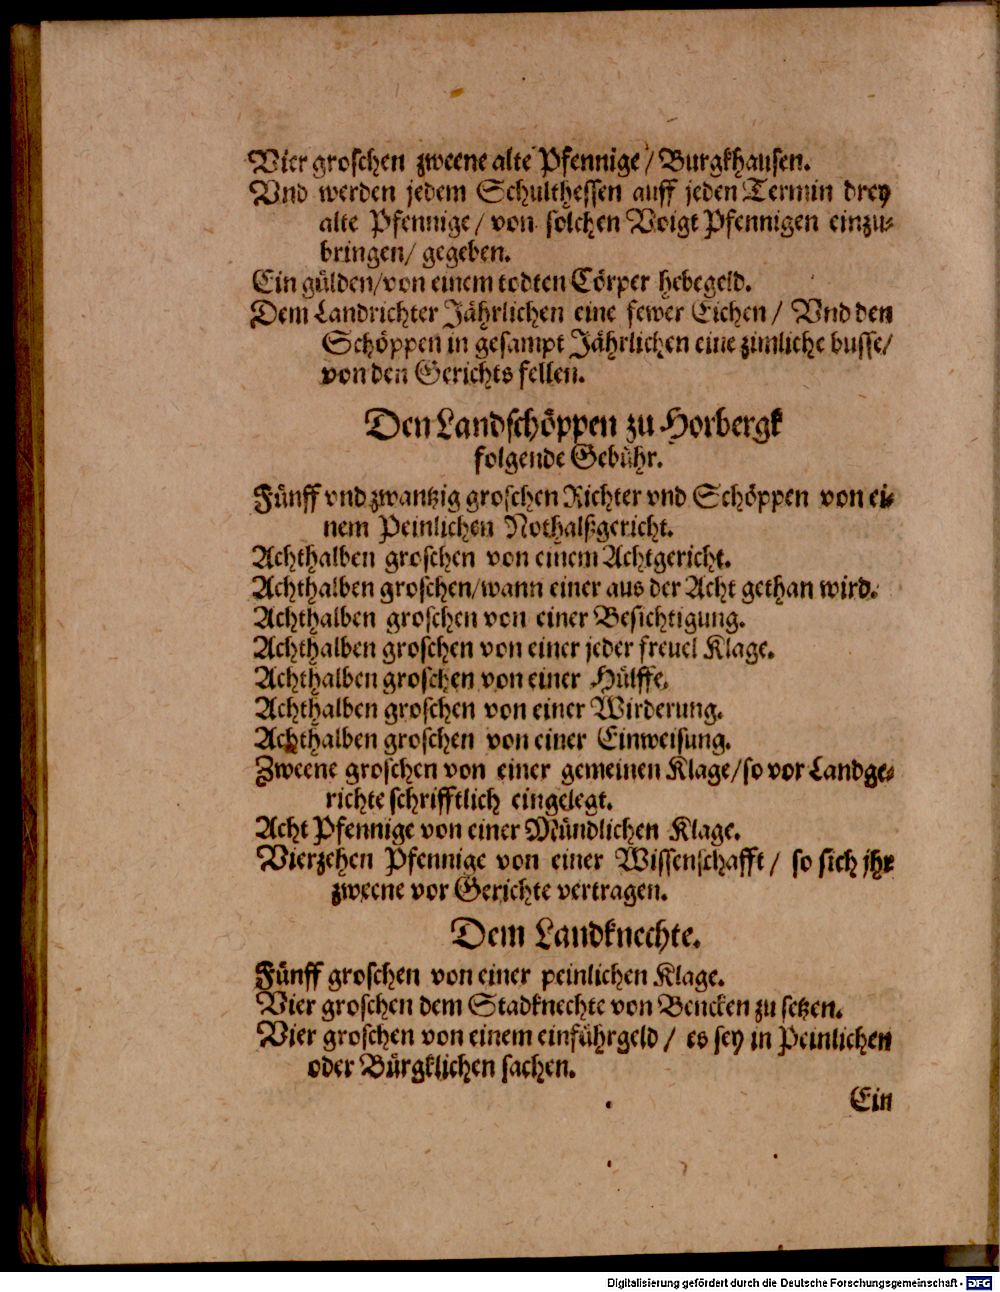 Vier groschen zweene alte Pfennige / Burgkhausen.
Vnd werden jedem Schulthessen auff jeden Termin drey
alte Pfennige / von solchen Voigt Pfennigen einzu-
bringen / gegeben.
Ein gülden / von einem todten Cörper hebegeld.
Dem Landrichter Jährlichen eine fewer Eichen / Vnd den
Schöppen in gesampt Jährlichen eine zimliche busse /
von den Gerichts fellen.
Den Landschöppen zu Horbergk
folgende Gebühr.
Fünff vnd zwantzig groschen Richter vnd Schöppen von ei-
nem Peinlichen Nothalßgericht.
Achthalben groschen von einem Achtgericht.
Achthalben groschen / wann einer aus der Acht gethan wird.
Achthalben groschen von einer Besichtigung.
Achthalben groschen von einer jeder freuel Klage.
Achthalben groschen von einer Hülffe.
Achthalben groschen von einer Wirderung.
Achthalben groschen von einer Einweisung.
Zweene groschen von einer gemeinen Klage / so vor Landge-
richte schrifftlich eingelegt.
Acht Pfennige von einer Mündlichen Klage.
Vierzehen Pfennige von einer Wissenschafft / so sich jhr
zweene vor Gerichte vertragen.
Dem Landknechte.
Fünff groschen von einer peinlichen Klage.
Vier groschen dem Stadknechte von Bencken zu setzen.
Vier groschen von einem einführgeld / es sey in Peinlichen
oder Bürgklichen sachen.
Ein
Digitalisierung gefördert durch die Deutsche Forschungsgemeinschaft - DFG